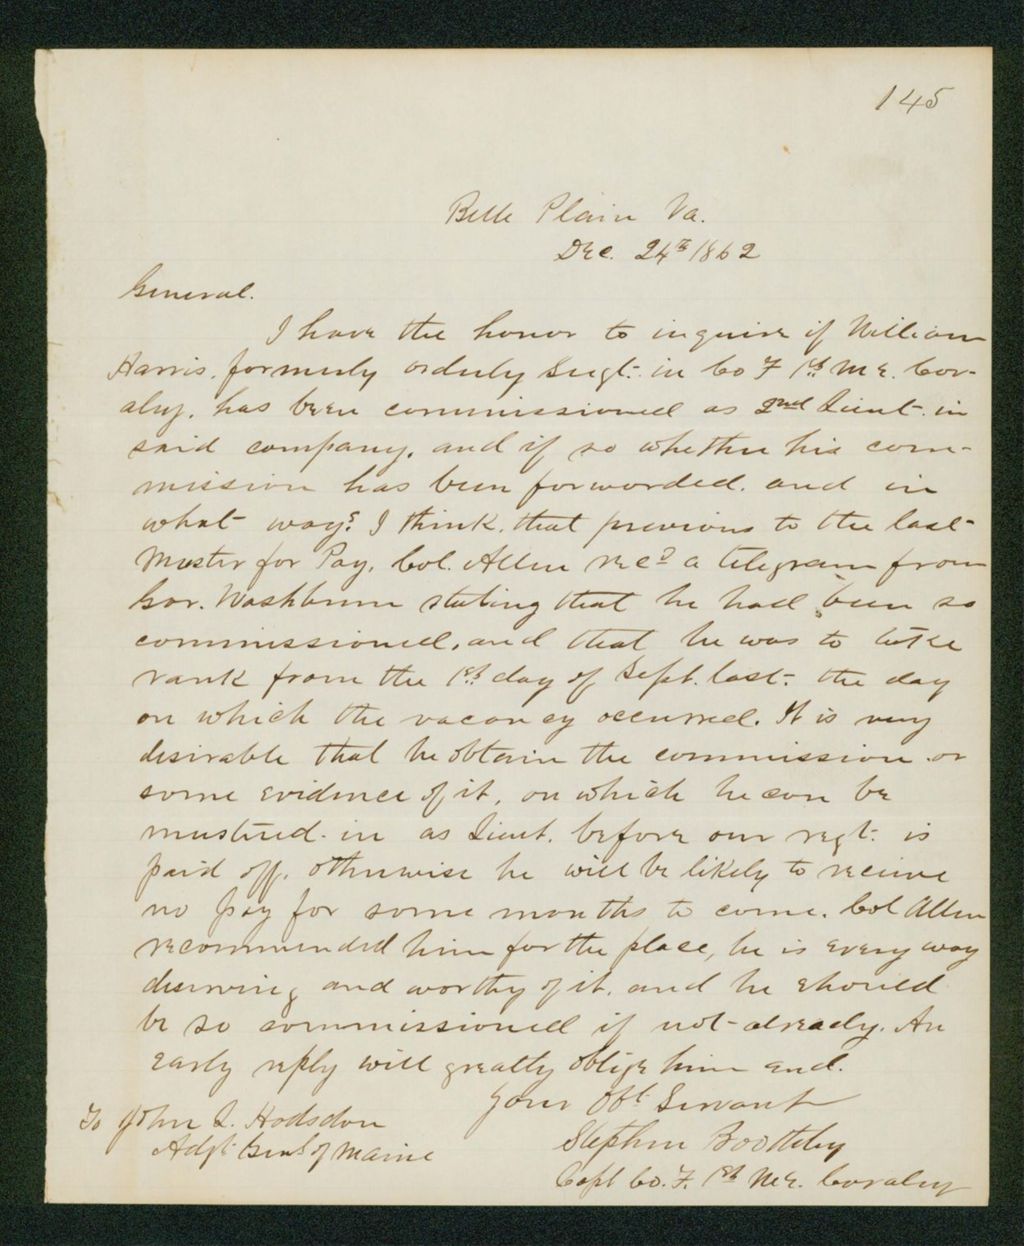 145
Belle Plain Va.
Dec. 24th 1862
General.
I have the honor to inquire if William
Harris, formerly orderly Sergt. in Co F 1st Me. Cav-
alry, has been commissioned as 2nd Lieut. in
said company, and if so whether his com-
mission has been forwarded, and in
what way? I think, that previous to the last
Muster for Pay, Col. Allen recd a telegram from
Gov. Washburn stating that he had been so
commissioned, and that he was to take
rank from the 1st day of Sept. last, the day
on which the vacancy occurred. It is very
desirable that he obtain the commission or
some evidence of it, on which he can be
mustered in as Lieut. before our regt. is
paid off, otherwise he will be likely to receive
no pay for some months to come. Col Allen
recommended him for the place, he is every way
deserving and worthy of it, and he should
be so commissioned if not already. An
early reply will greatly oblige him and.
Your Obt Servant
Stephen Boothby
Capt Co. F. 1st Me. Cavalry
To John L. Hodsdon
Adjt Genl of Maine